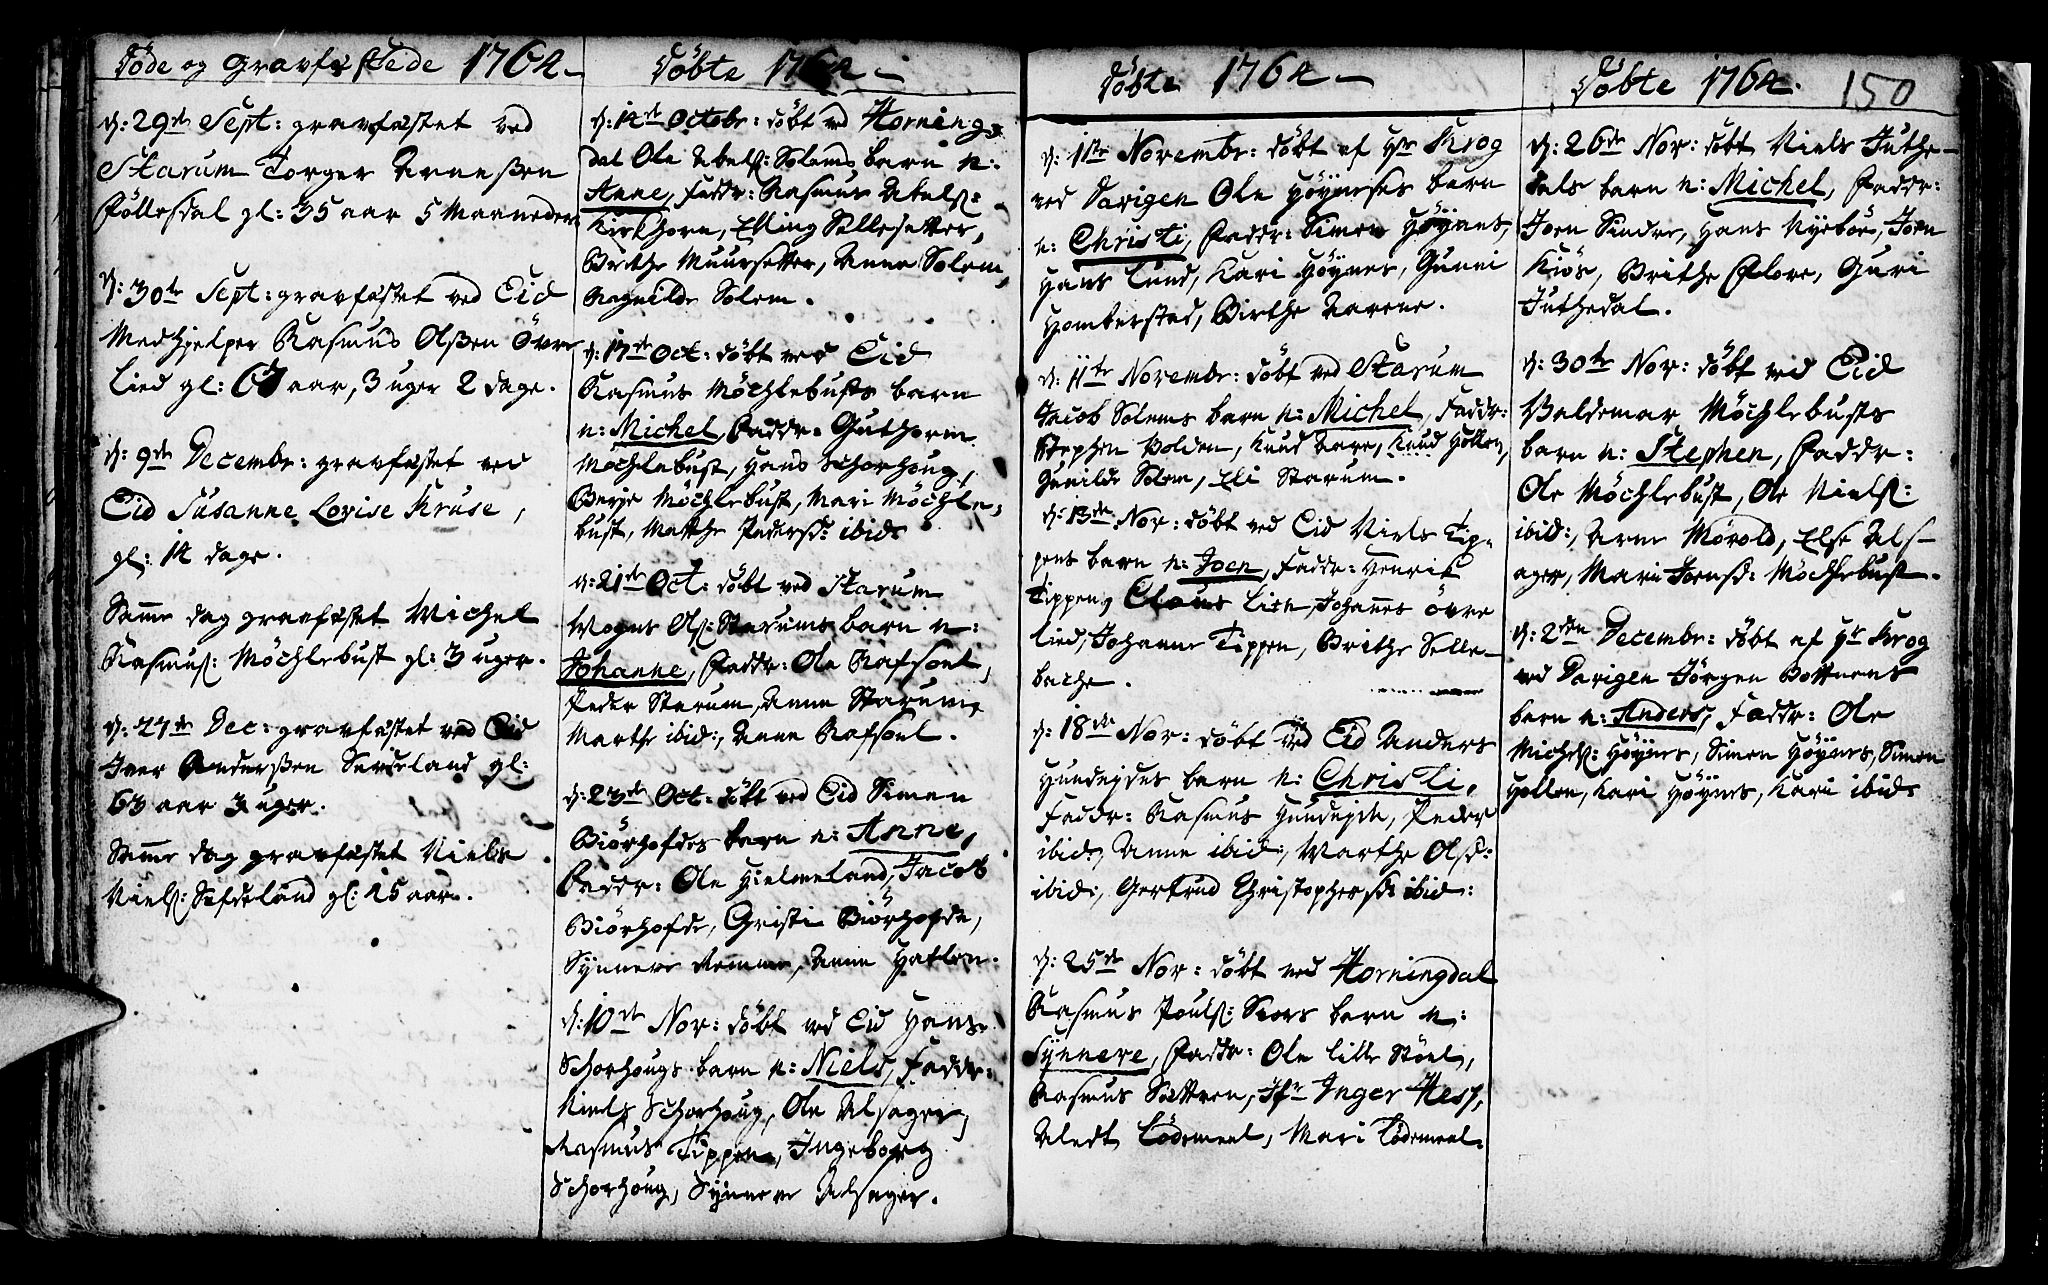 Døde og gravfæstede 1764
d: 29de Sept: gravfæstet ved
Starum Torger Arneßen
Föllesdal gl: 35 aar 5 Maaneder.
d: 30te Sept: gravfæstet ved Eid
Medhjelper Rasmus Olßen Övre
Lied gl: 67 aar, 3 uger 2 dage.
d: 9de Decembr: gravfæstet ved
Eid Susanne Lovise Kruse,
gl: 14 dage.
Samme dag gravfæstet Michel
Rasmuß: Möchlebust gl: 3 uger.
d: 27de Dec: gravfæstet ved Eid
Iver Anderßen Sefdeland gl:
63 aar 3 uger.
Samme dag gravfæstet Niels
Nielß: Sefdeland gl: 15 aar.
Döbte 1764
d: 14de Octobr: döbt ved Hornings
dal Ole Abelß: Solems barn n:
Anne, Faddr: Rasmus Abelß:
Kirkhorn, Elling Sellesetter,
Birthe Muursetter, Anne Solem,
Ragnilde Solem.
d: 17de Oct: döbt ved Eid
Rasmus Möchlebusts barn
n: Michel, Faddr: Guthorm
Möchlebust, Hans Schorhoug,
Berje Möchlebust, Mari Möchle-
bust, Marthe Pedersd: ibid:
d: 21de Oct: döbt ved Starum
Mogns Olß: Starums barn n:
Johanne, Faddr: Ole Rafsoel,
Peder Starum, Anne Starum,
Marthe ibid:, Anne Rafsoel.
d: 23de Oct: döbt ved Eid Simen
Biörhofdes barn n: Anne,
Faddr: Ole Hielmeland, Jacob
Biörhofde, Christi Biörhofde,
Synneve Remme, Anne Hatlen.
d: 10de Nov: döbt ved Eid Hans
Schorhougs barn n: Niels, Faddr:
Niels Schorhoug, Ole Alsager,
Rasmus Tippen, Ingeborg
Schorhoug, Synneve Alsager.
Döbte 1764
d: 11te Novembr: döbt af Hr Krog
ved Davigen Ole Höyneses barn
n: Christi, Faddr: Simen Höynes,
Hans Lund, Kari Höynes, Gunni
Homberstad, Birthe Aarene.
d: 11te Novembr: döbt ved Starum
Jacob Solems barn n: Michel, Faddr:
Stephen Holden, Knud Aare, Knud Hollen,
Gunilde Solem, Eli Starum.
d: 13de Nov: döbt ved Eid Niels Tip-
pens barn n: Joen, Faddr: Henrik
Tippen, Claus Lien, Johannes Övre
Lied, Johanne Tippen, Brithe Selle-
bache.
d: 18de Nov: döbt ved Eid Anders
Hundejdes barn n: Christi,
Faddr: Rasmus Hundejde, Peder
ibid:, Anne ibid:, Marthe Olsd:
ibid:, Gertrud Christophersd: ibid:
d: 25de Nov: döbt ved Horningdal
Rasmus Poulß: Skors barn n:
Synneve, Faddr: Ole Lille Stöel,
Rasmus Sættren, Jfr Inger Hess,
Aledt Lödemeel, Mari Lödemeel.
Döbte 1764. 150
d: 26de Nov: döbt Niels Juthe-
dals barn n: Michel, Faddr:
Joen Sindre, Hans Nyeböe, Joen
Kiös, Brithe Flore, Guri
Juthedal.
d: 30te Nov: döbt ved Eid
Valdemar Möchlebusts
barn n: Stephen, Faddr:
Ole Möchlebust, Ole Nielß:
ibid:, Arne Mövold, Else Als-
ager, Mari Joensd: Möchlebust.
d: 2den Decembr: döbt af Hr Krog
ved Davigen Jörgen Bottnens
barn n: Anders, Faddr: Ole
Michelß: Höynes, Simen Höynes, Simen
Hollen, Kari Höynes, Kari ibid: